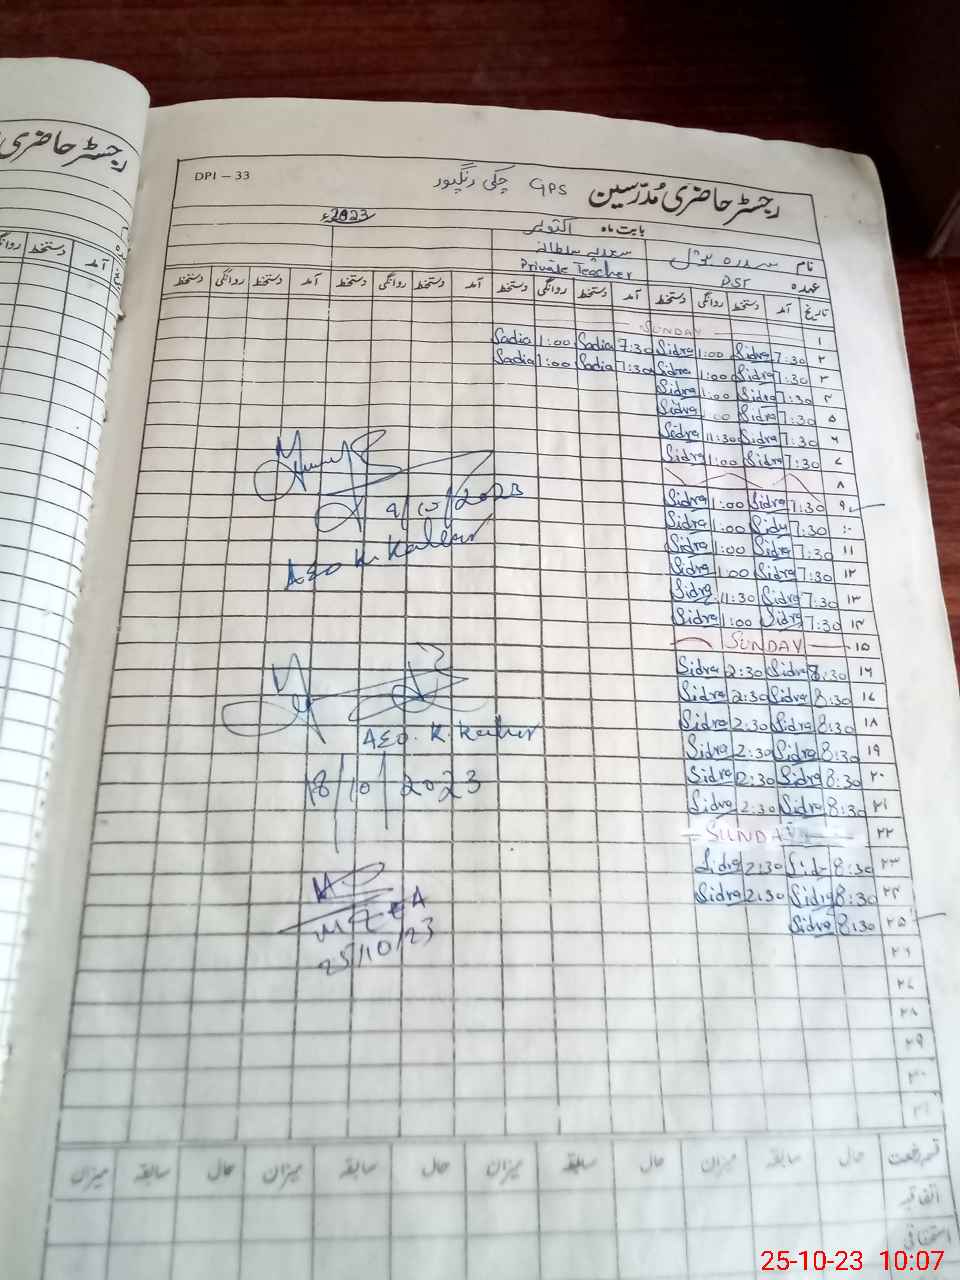 رجسٹر حاضری
DPI – 33
رجسٹر حاضری مُدرّسین GPS چکی رنگپور
بابت ماہ اکتوبر 2023ء
نام سدرہ بتول سعدیہ سلطانہ
عہدہ PST Private Teacher
تاریخ آمد دستخط روانگی دستخط آمد دستخط روانگی دستخط آمد دستخط روانگی دستخط آمد دستخط روانگی دستخط
۱ SUNDAY
۲ 7:30 Sidra 1:00 Sidra 7:30 Sadia 1:00 Sadia
۳ 7:30 Sidra 1:00 Sidra 7:30 Sadia 1:00 Sadia
۴ 7:30 Sidra 1:00 Sidra
۵ 7:30 Sidra 1:00 Sidra
۶ 7:30 Sidra 11:30 Sidra
۷ 7:30 Sidra 1:00 Sidra
۸
۹ 7:30 Sidra 1:00 Sidra
۱۰ 7:30 Sidra 1:00 Sidra
۱۱ 7:30 Sidra 1:00 Sidra
۱۲ 7:30 Sidra 1:00 Sidra
۱۳ 7:30 Sidra 11:30 Sidra
۱۴ 7:30 Sidra 1:00 Sidra
۱۵ SUNDAY
۱۶ 8:30 Sidra 2:30 Sidra
۱۷ 8:30 Sidra 2:30 Sidra
۱۸ 8:30 Sidra 2:30 Sidra
۱۹ 8:30 Sidra 2:30 Sidra
۲۰ 8:30 Sidra 2:30 Sidra
۲۱ 8:30 Sidra 2:30 Sidra
۲۲ SUNDAY
۲۳ 8:30 Sidra 2:30 Sidra
۲۴ 8:30 Sidra 2:30 Sidra
۲۵ 8:30 Sidra
۲۶
۲۷
۲۸
۲۹
۳۰
۳۱
9/10/2023
AEO K. Kallur
AEO. K. Kallur
18/10/2023
MEA
25/10/23
قسم رخصت حال سابقہ میزان حال سابقہ میزان حال سابقہ میزان حال سابقہ میزان
اتفاقیہ
استحقاقی
25-10-23 10:07